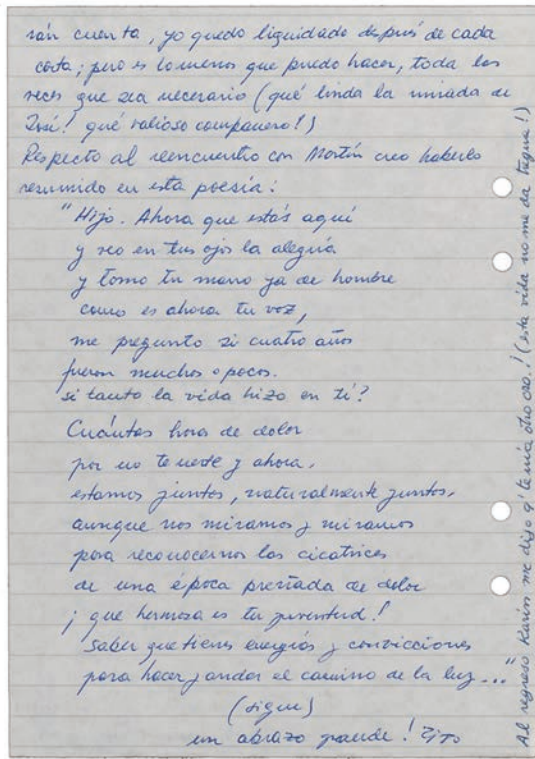 rán cuenta, yo quedo liquidado después de cada
carta; pero es lo menos que puedo hacer, toda las
veces que sea necesario (qué linda la mirada de
José! qué valioso compañero!)
Respecto al reencuentro con Martín creo haberlo
resumido en esta poesía:
"Hijo. Ahora que estás aquí
y veo en tus ojos la alegría
y tomo tu mano ya de hombre
como es ahora tu voz,
me pregunto si cuatro años
fueron muchos o pocos.
si tanto la vida hizo en tí?
Cuántas horas de dolor
por no tenerte y ahora,
estamos juntos, naturalmente juntos,
aunque nos miramos y miramos
para reconocernos las cicatrices
de una época preñada de dolor
¡que hermosa es tu juventud!
saber que tienes energías y convicciones
para hacer y andar el camino de la luz..."
(sigue)
un abrazo grande! Tito
Al regreso Karin me dijo q' tenía otro
! (esta vida no me da tregua!)